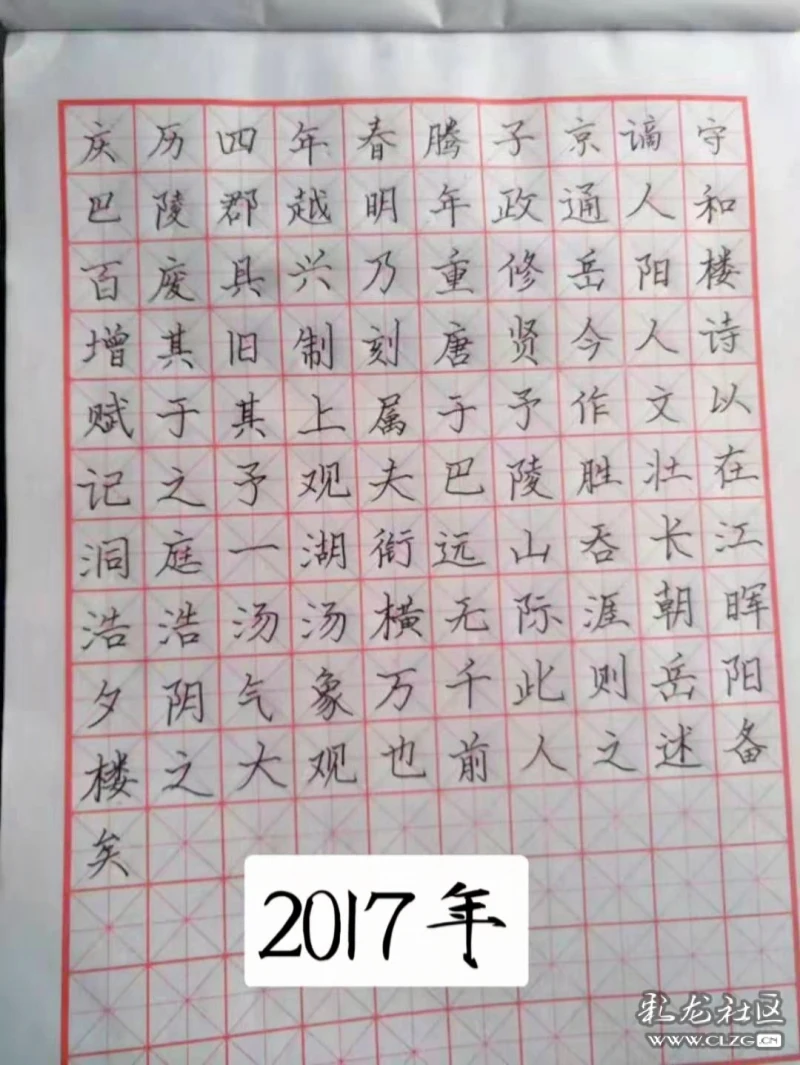 庆历四年春腾子京谪守
巴陵郡越明年政通人和
百废具兴乃重修岳阳楼
增其旧制刻唐贤今人诗
赋于其上属于予作文以
记之予观夫巴陵胜壮在
洞庭一湖衔远山吞长江
浩浩汤汤横无际涯朝晖
夕阴气象万千此则岳阳
楼之大观也前人之述备
矣
2017年
彩龙社区
WWW.CLZG.CN